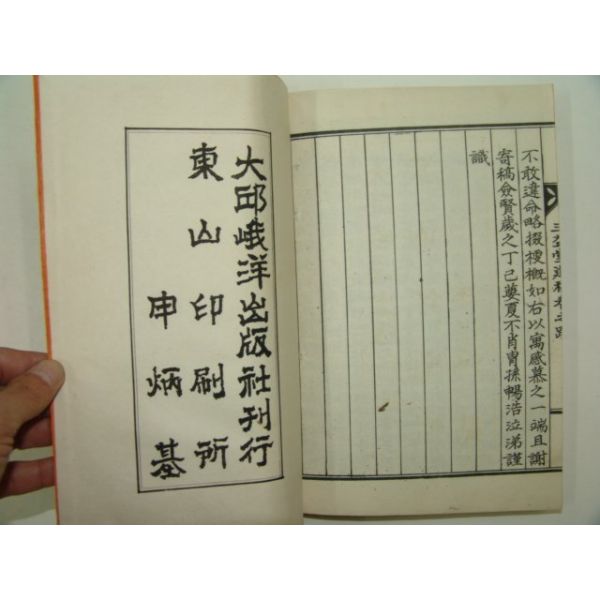 不敢違命略掇梗概如右以寓感慕之一端且謝
寄稿僉賢歲之丁巳蓂夏不肖胄孫暢浩泣涕謹
識
大邱峨洋出版社刊行
東山印刷所
申炳基